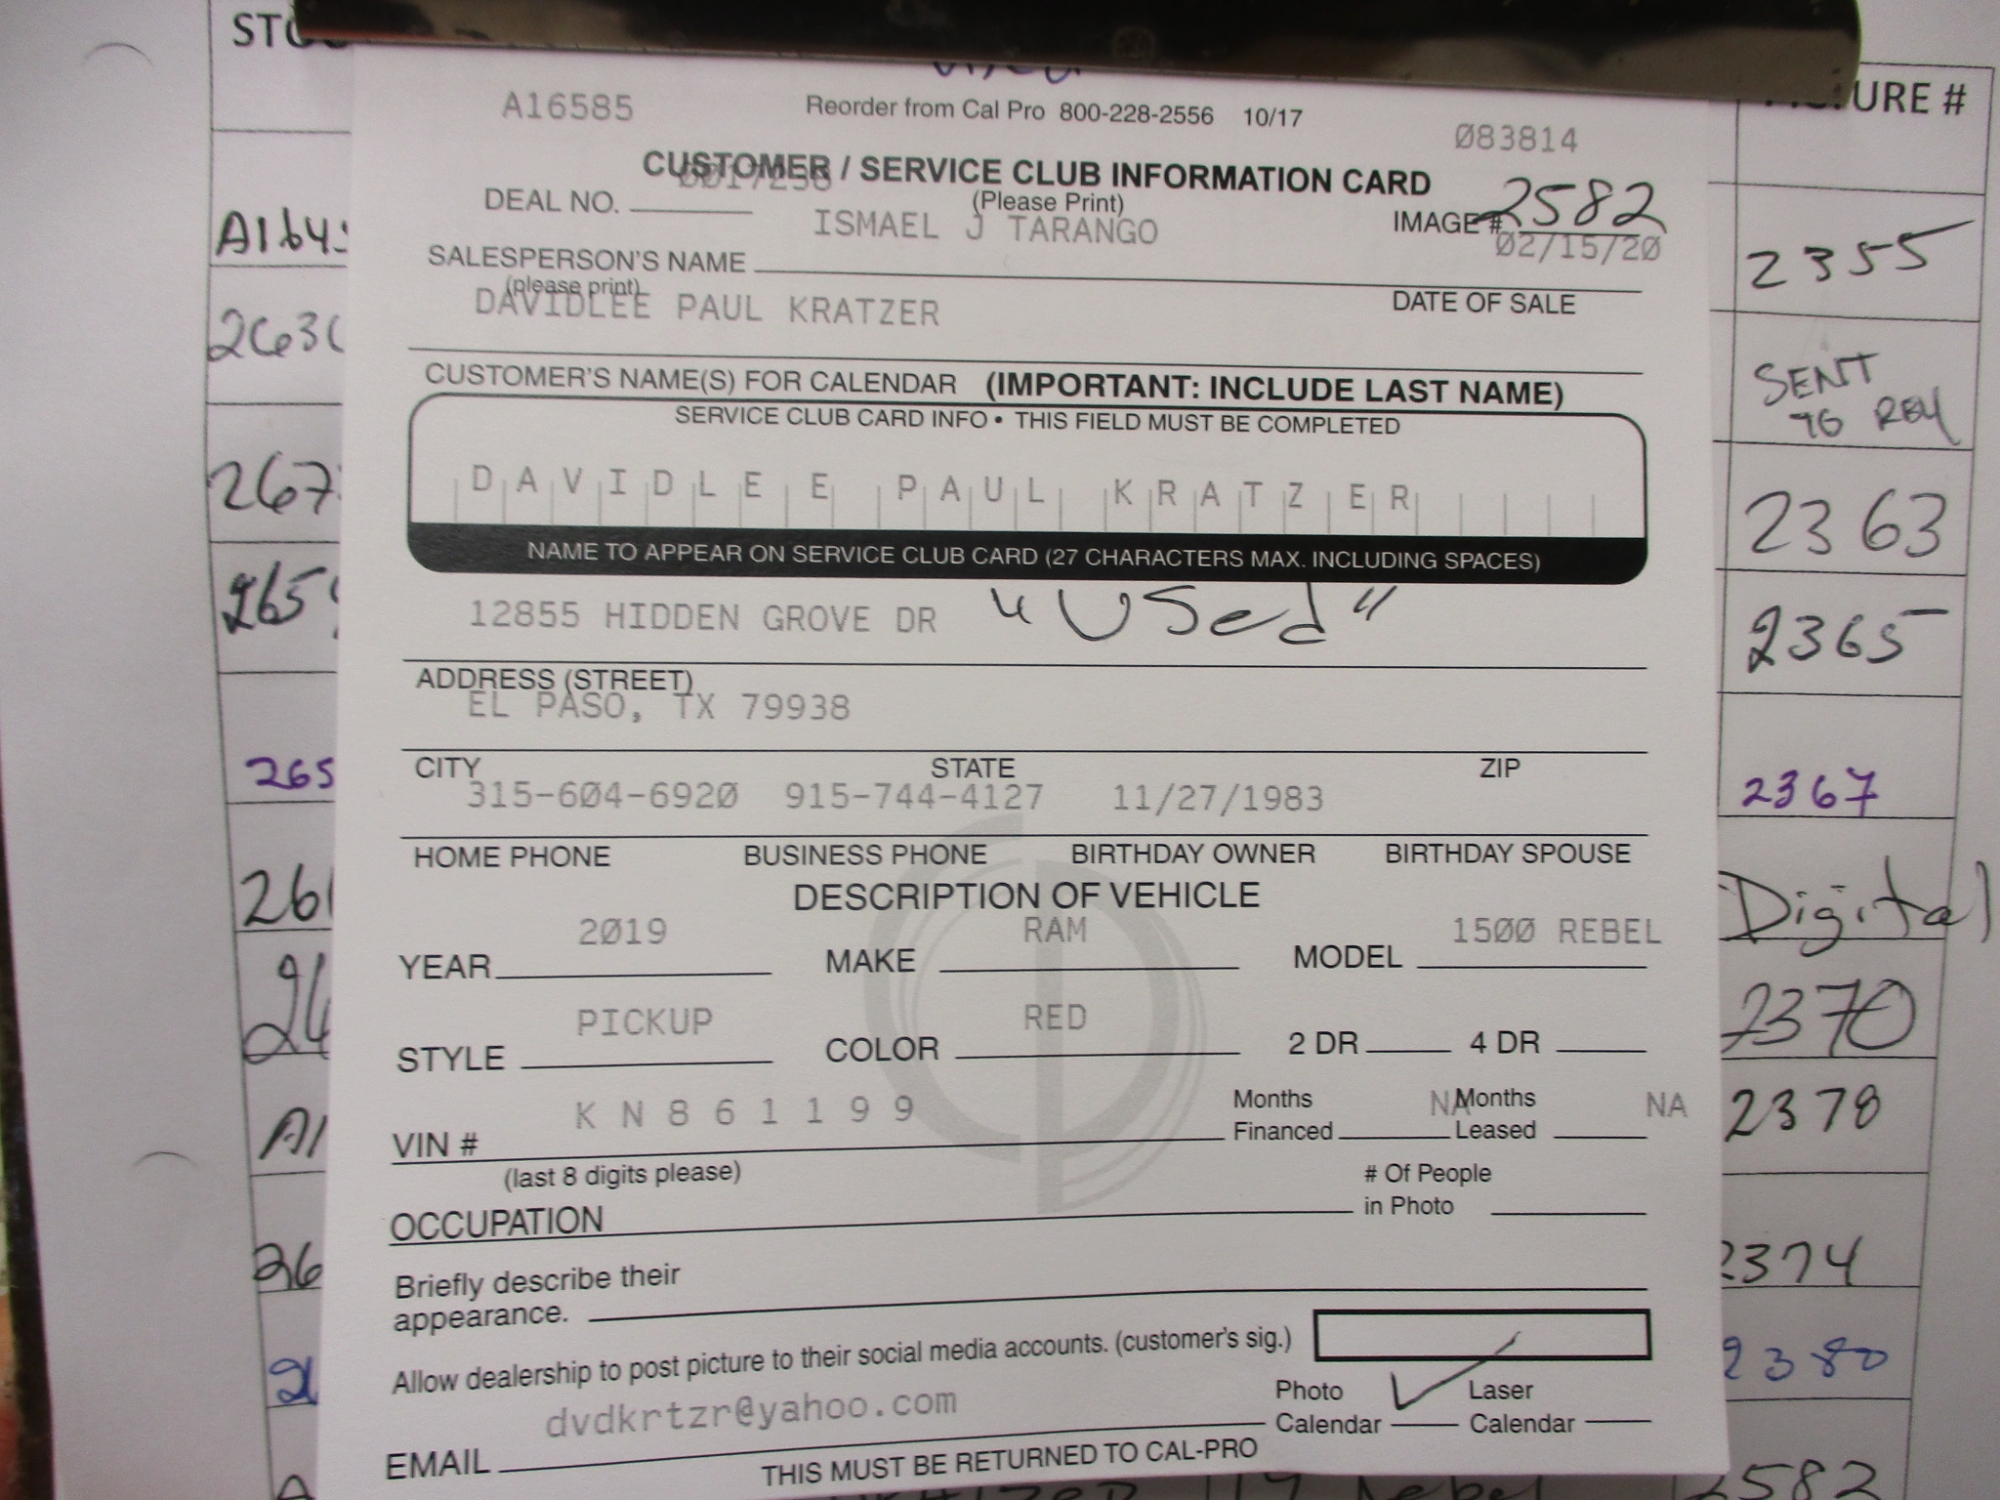 A16585 Reorder from Cal Pro 800-228-2556 10/17 083814
URE #
CUSTOMER / SERVICE CLUB INFORMATION CARD
(Please Print)
DEAL NO. IMAGE # 2582
ISMAEL J TARANGO 02/15/20
SALESPERSON'S NAME
(please print) DATE OF SALE
DAVIDLEE PAUL KRATZER
CUSTOMER'S NAME(S) FOR CALENDAR (IMPORTANT: INCLUDE LAST NAME)
SERVICE CLUB CARD INFO • THIS FIELD MUST BE COMPLETED
DAVIDLEE PAUL KRATZER
NAME TO APPEAR ON SERVICE CLUB CARD (27 CHARACTERS MAX. INCLUDING SPACES)
12855 HIDDEN GROVE DR "Used"
ADDRESS (STREET)
EL PASO, TX 79938
CITY STATE ZIP
315-604-6920 915-744-4127 11/27/1983
HOME PHONE BUSINESS PHONE BIRTHDAY OWNER BIRTHDAY SPOUSE
DESCRIPTION OF VEHICLE
YEAR 2019 MAKE RAM MODEL 1500 REBEL
STYLE PICKUP COLOR RED 2 DR 4 DR
VIN # K N 8 6 1 1 9 9 Months Financed NA Months Leased NA
(last 8 digits please)
OCCUPATION # Of People in Photo
Briefly describe their
appearance.
Allow dealership to post picture to their social media accounts. (customer's sig.)
EMAIL dvdkrtzr@yahoo.com Photo Calendar Laser Calendar
THIS MUST BE RETURNED TO CAL-PRO
2355
SENT
TO
2363
2365
2367
Digital
2370
2378
2374
2380
2582